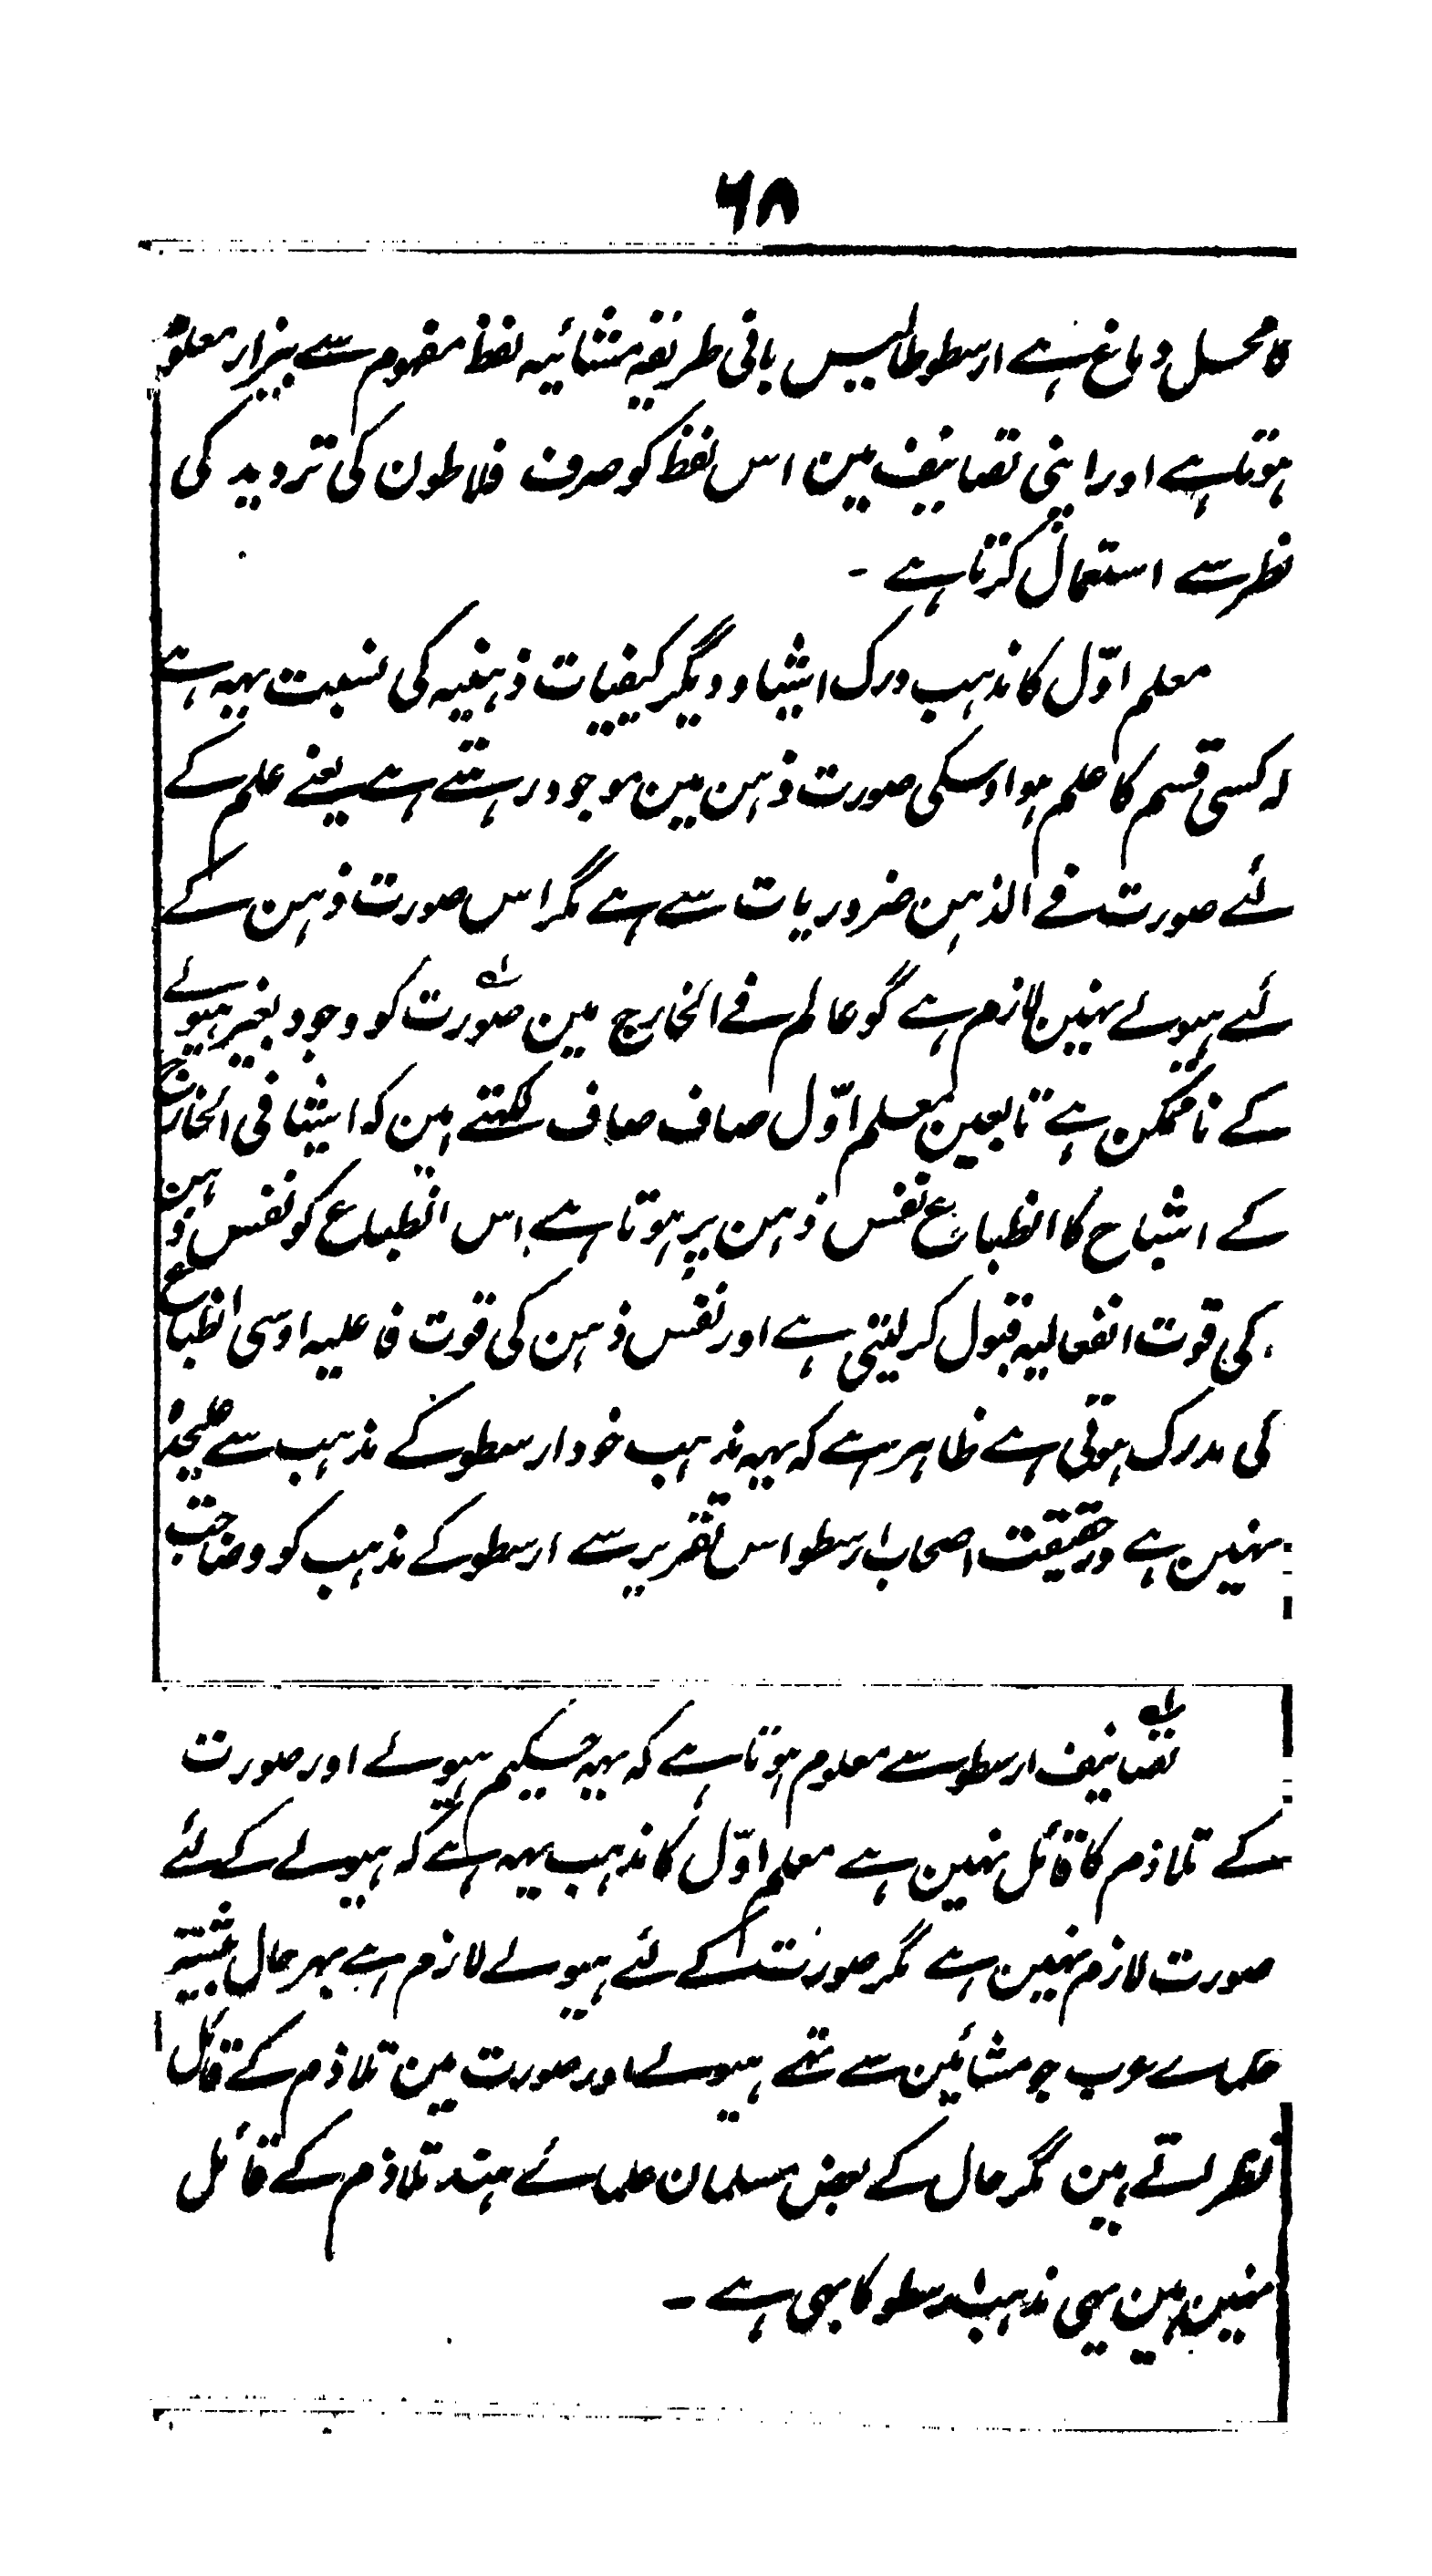 ۶۸
کا محل دماغ ہے ارسطوطالیس بانی طریقہ مشائیہ لفظ مفہوم سے بیزار معلوم
ہوتا ہے اور اپنی تصانیف مین اس لفظ کو صرف فلاطون کی تردید کی
نظر سے استعمال کرتا ہے ۔
معلم اوّل کا مذہب درک اشیا و دیگر کیفیات ذہنیہ کی نسبت یہہ ہے
کہ کسی قسم کا علم ہو اوسکی صورت ذہن مین موجود رہتے ہے یعنے علم کے
لئے صورت فے الذہن ضروریات سے ہے مگر اس صورت ذہن کے
لئے ہیولے نہین لازم ہے گو عالم فے الخارج مین صورت کو وجود بغیر ہیولے
کے ناممکن ہے تابعین معلم اوّل صاف صاف لکھتے ہین کہ اشیا فی الخارج
کے اشباح کا انطباع نفس ذہن پر ہوتا ہے اس انطباع کو نفس ذہن
کی قوت انفعالیہ قبول کر لیتی ہے اور نفس ذہن کی قوت فاعلیہ اوسی انطباع
کی مدرک ہوتی ہے ظاہر ہے کہ یہہ مذہب خود ارسطو کے مذہب سے علیحدہ
نہین ہے درحقیقت اصحاب ارسطو اس تقریر سے ارسطو کے مذہب کو وضاحت
تصانیف ارسطو سے معلوم ہوتا ہے کہ یہہ حکیم ہیولے اور صورت
کے تلازم کا قائل نہین ہے معلم اوّل کا مذہب یہہ ہے کہ ہیولے کے لئے
صورت لازم نہین ہے مگر صورت کے لئے ہیولے لازم ہے بہرحال بیشتر
حکماے عرب جو مشائین سے تھے ہیولے اور صورت مین تلازم کے قائل
نظر آتے ہین مگر حال کے بعض مسلمان علمائے ہند تلازم کے قائل
نہین ہین یہی مذہب ارسطو کا بھی ہے ۔